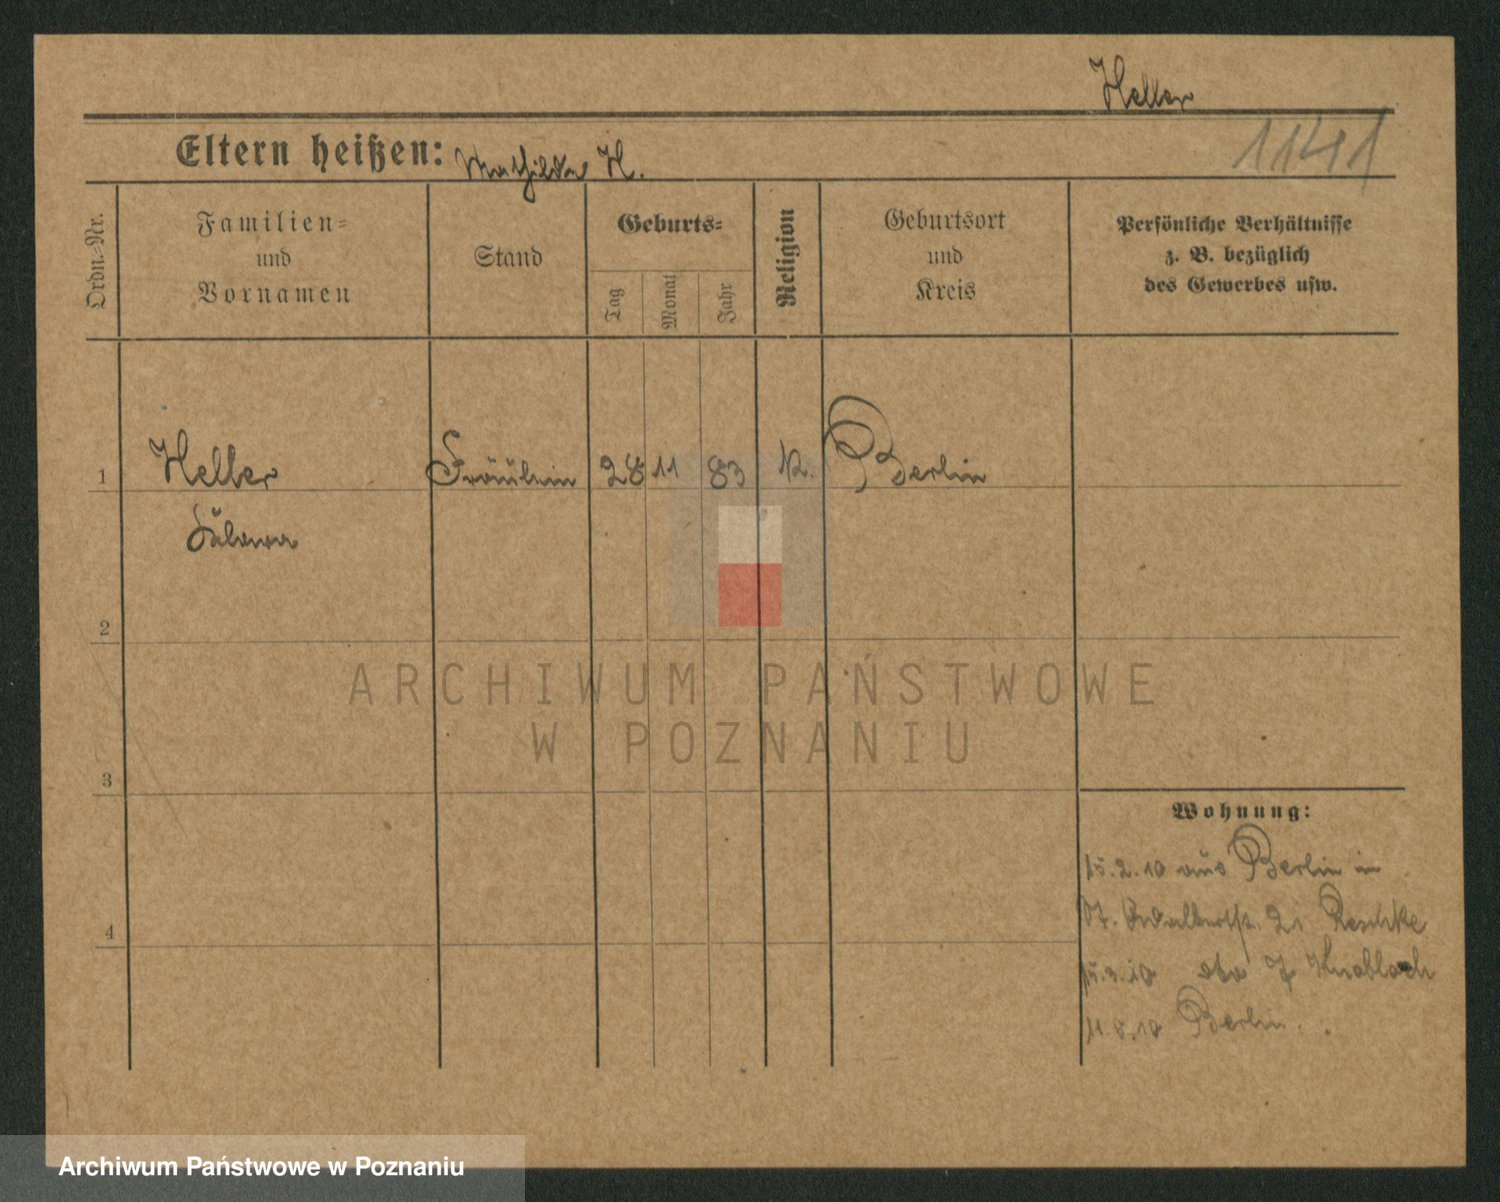 Heller
Eltern heißen: Mathilde H.
1141
Ordn.-Nr.
Familien- und Vornamen
Stand
Geburts-
Tag
Monat
Jahr
Religion
Geburtsort und Kreis
Persönliche Verhältnisse
z. B. bezüglich
des Gewerbes usw.
1 Heller Fräulein 28 11 83 K. Berlin
2
3
4
Wohnung:
15.2.10 aus Berlin in
St. Adalbertstr. 21 Reschke
15.3.10 7 Knobloch
11.5.10 Berlin.
ARCHIWUM PAŃSTWOWE
W POZNANIU
Archiwum Państwowe w Poznaniu